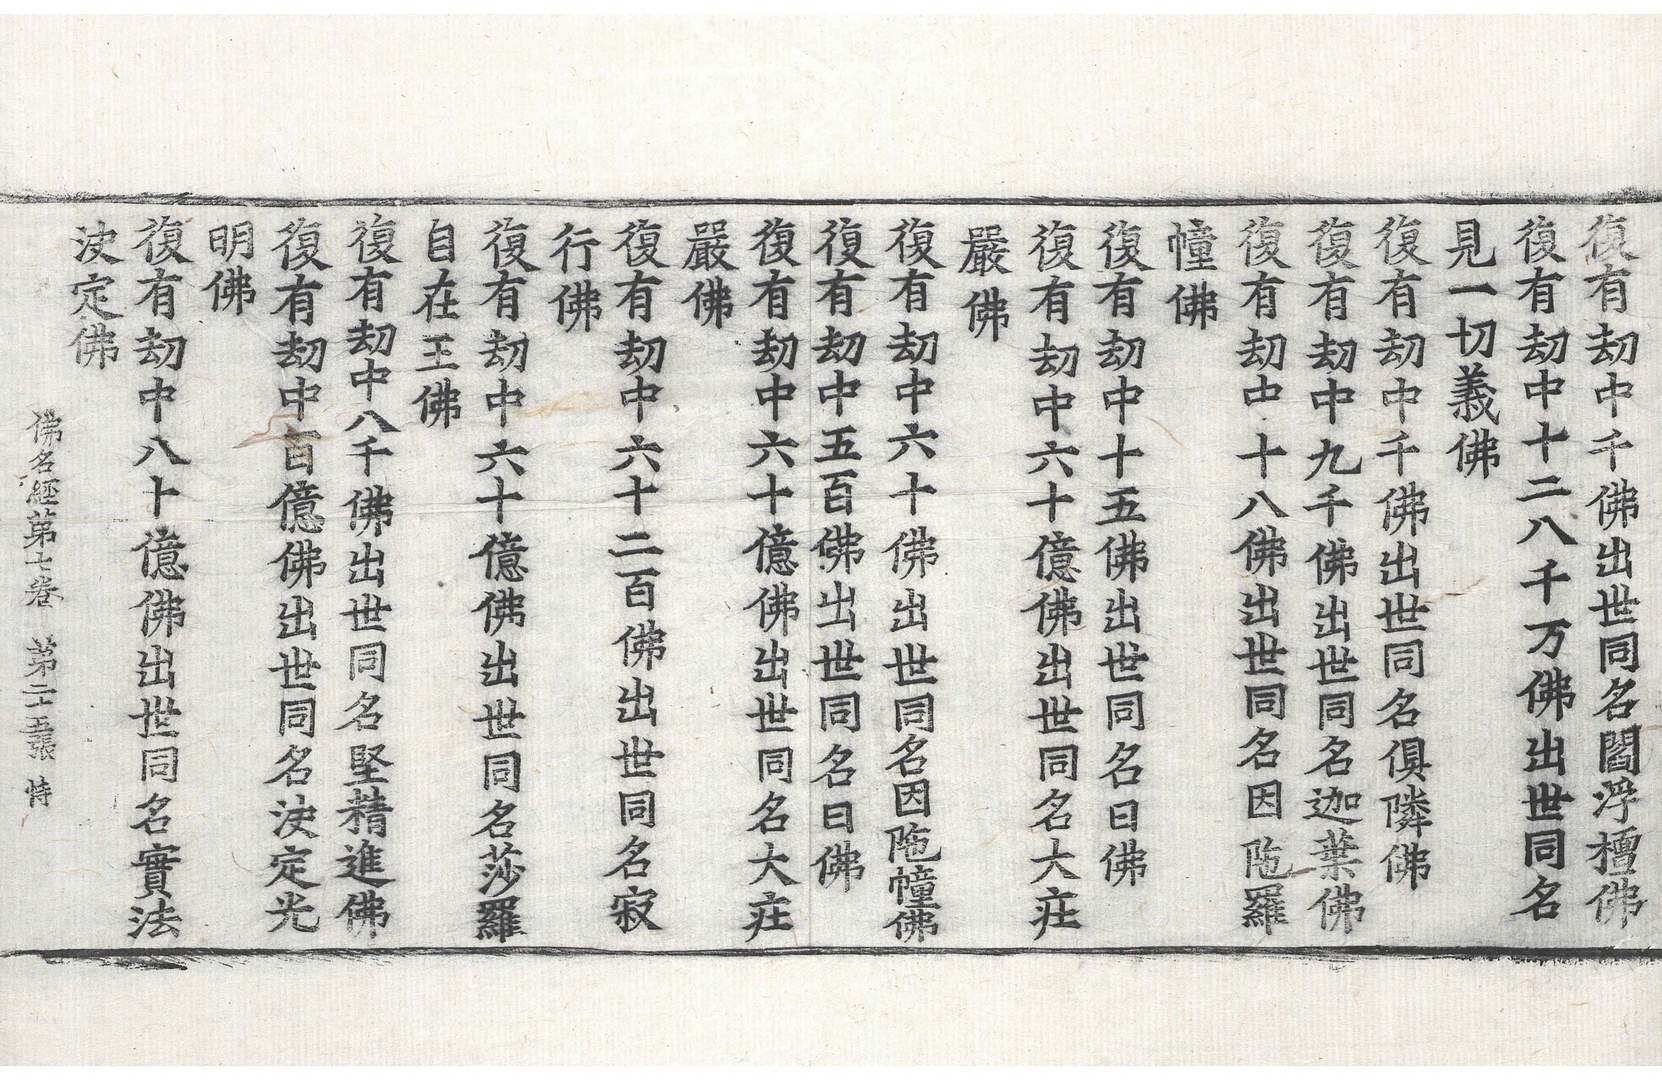 復有刧中千佛出世同名閻浮檀佛
復有刧中十二八千万佛出世同名
見一切義佛
復有刧中千佛出世同名俱隣佛
復有刧中九千佛出世同名迦葉佛
復有刧中十八佛出世同名因陁羅
幢佛
復有刧中十五佛出世同名日佛
復有刧中六十億佛出世同名大莊
嚴佛
復有刧中六十佛出世同名因陁幢佛
復有刧中五百佛出世同名日佛
復有刧中六十億佛出世同名大莊
嚴佛
復有刧中六十二百佛出世同名寂
行佛
復有刧中六十億佛出世同名莎羅
自在王佛
復有刧中八千佛出世同名堅精進佛
復有刧中百億佛出世同名決定光
明佛
復有刧中八十億佛出世同名實法
決定佛
佛名經第七卷 第二十五張 恃